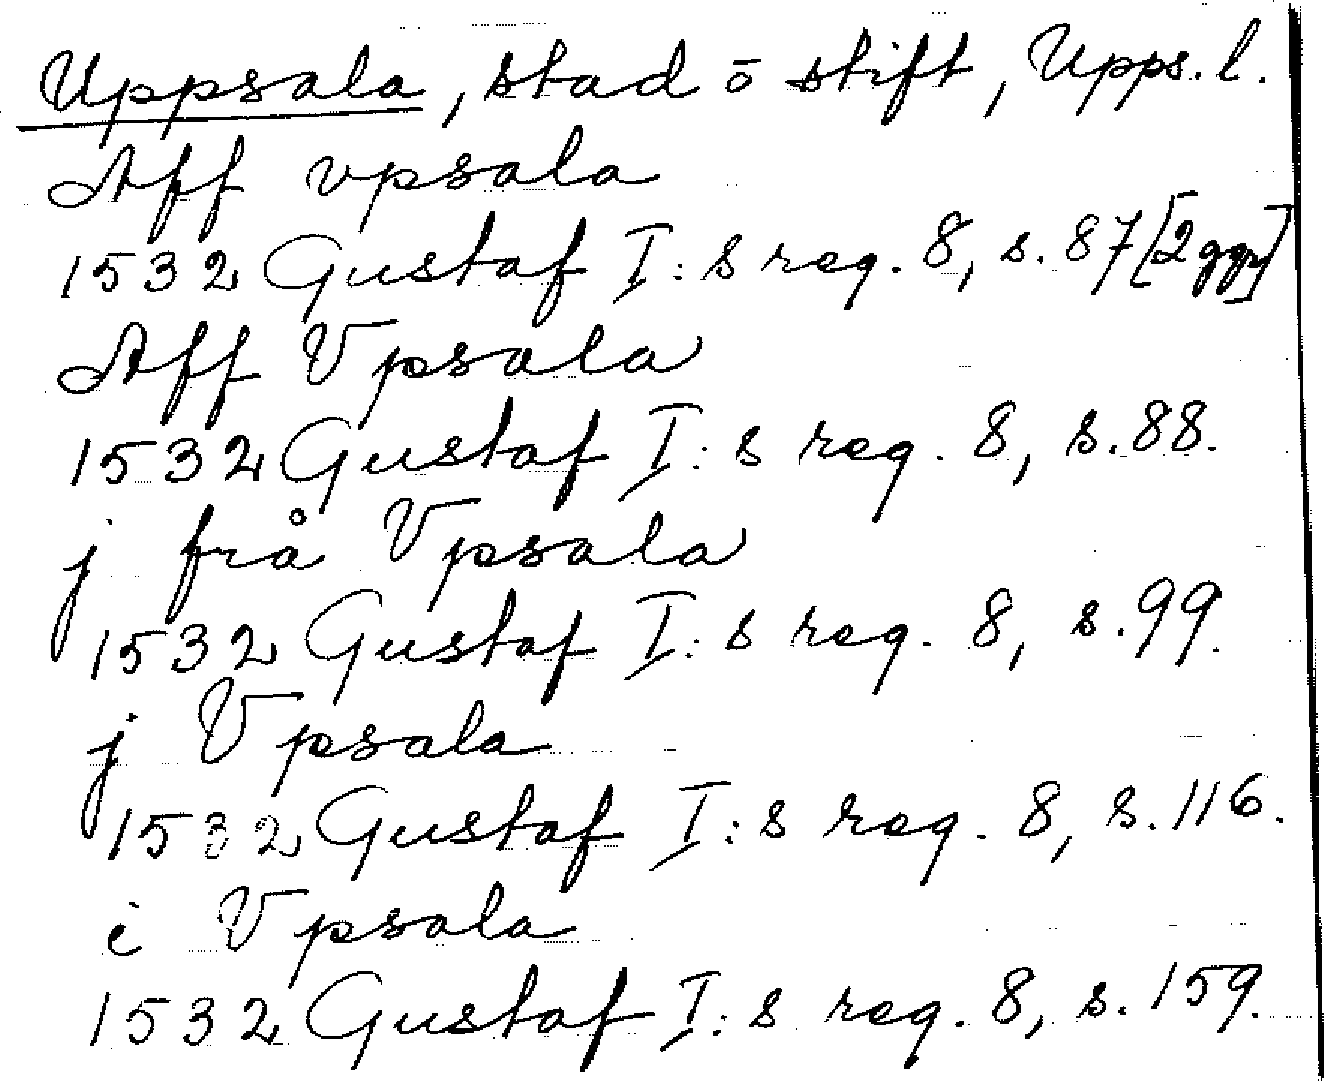 Uppsala, stad o stift, Upps. l.
Aff vpsala
1532 Gustaf I:s reg. 8, s. 87 [2 ggr]
Aff Vpsala
1532 Gustaf I:s reg. 8, s. 88.
j frå Vpsala
1532 Gustaf I:s reg. 8, s. 99.
j Vpsala
1532 Gustaf I:s reg. 8, s. 116.
i Vpsala
1532 Gustaf I:s reg. 8, s. 159.